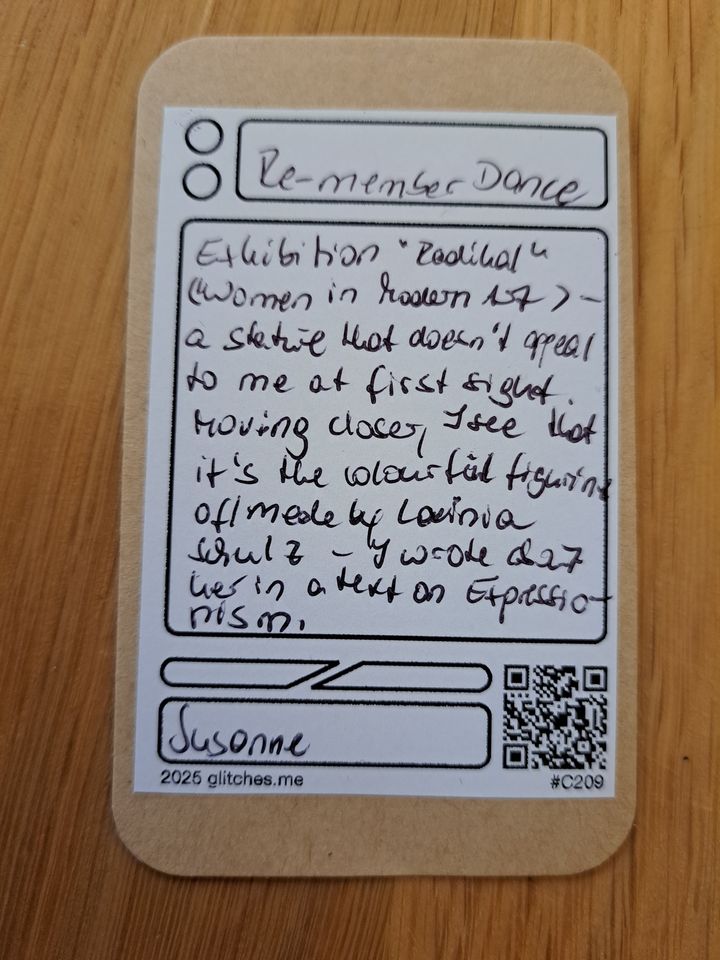 Re-member Dance
Exhibition "Radikal"
(Women in Modern Art) -
a statue that doesn't appeal
to me at first sight.
Moving closer, I see that
it's the colourful figurine
of/made by Lavinia
Schulz - I wrote about
her in a text on Expressio-
nism.
Susanne
2025 glitches.me
#C209